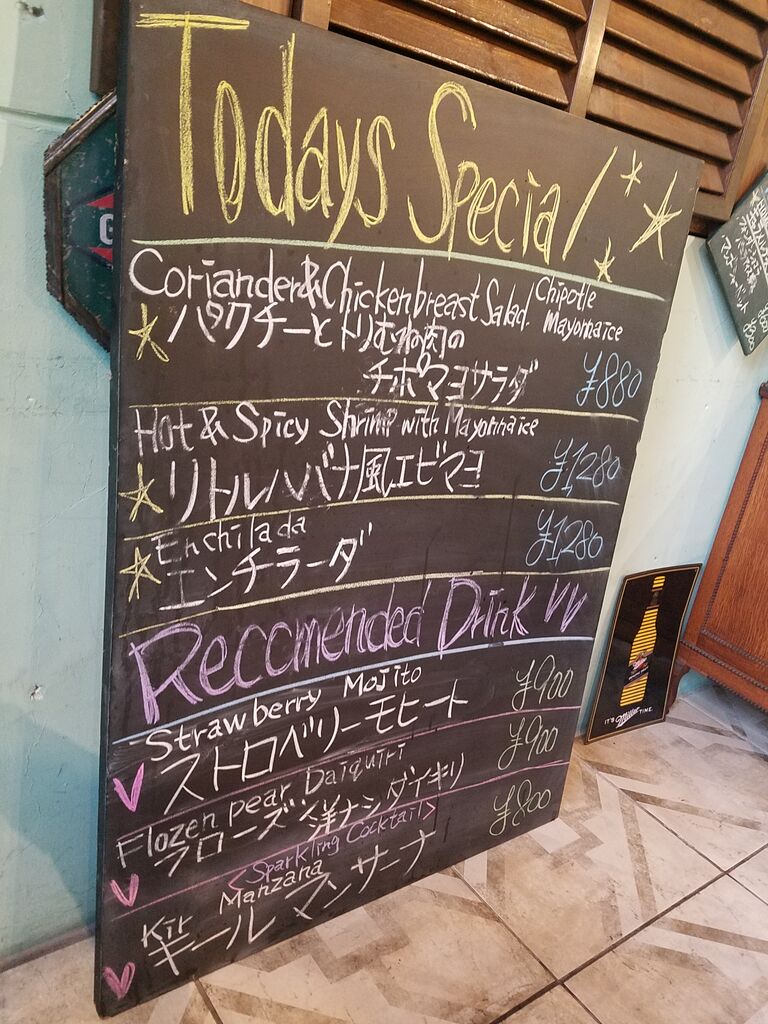 Todays Special
Coriander & Chicken breast Salad. Chipotle Mayonnaice
パクチーとトリむね肉の
チポマヨサラダ ¥880
Hot & Spicy Shrimp with Mayonnaice
リトルハバナ風エビマヨ ¥1,280
Enchilada
エンチラーダ ¥1,280
Reccomended Drink
Strawberry Mojito
ストロベリーモヒート ¥900
Flozen pear Daiquiri
フローズン洋ナシダイキリ ¥900
<Sparkling Cocktail>
Kir Manzana
キールマンサーナ ¥800
IT'S Miller TIME.